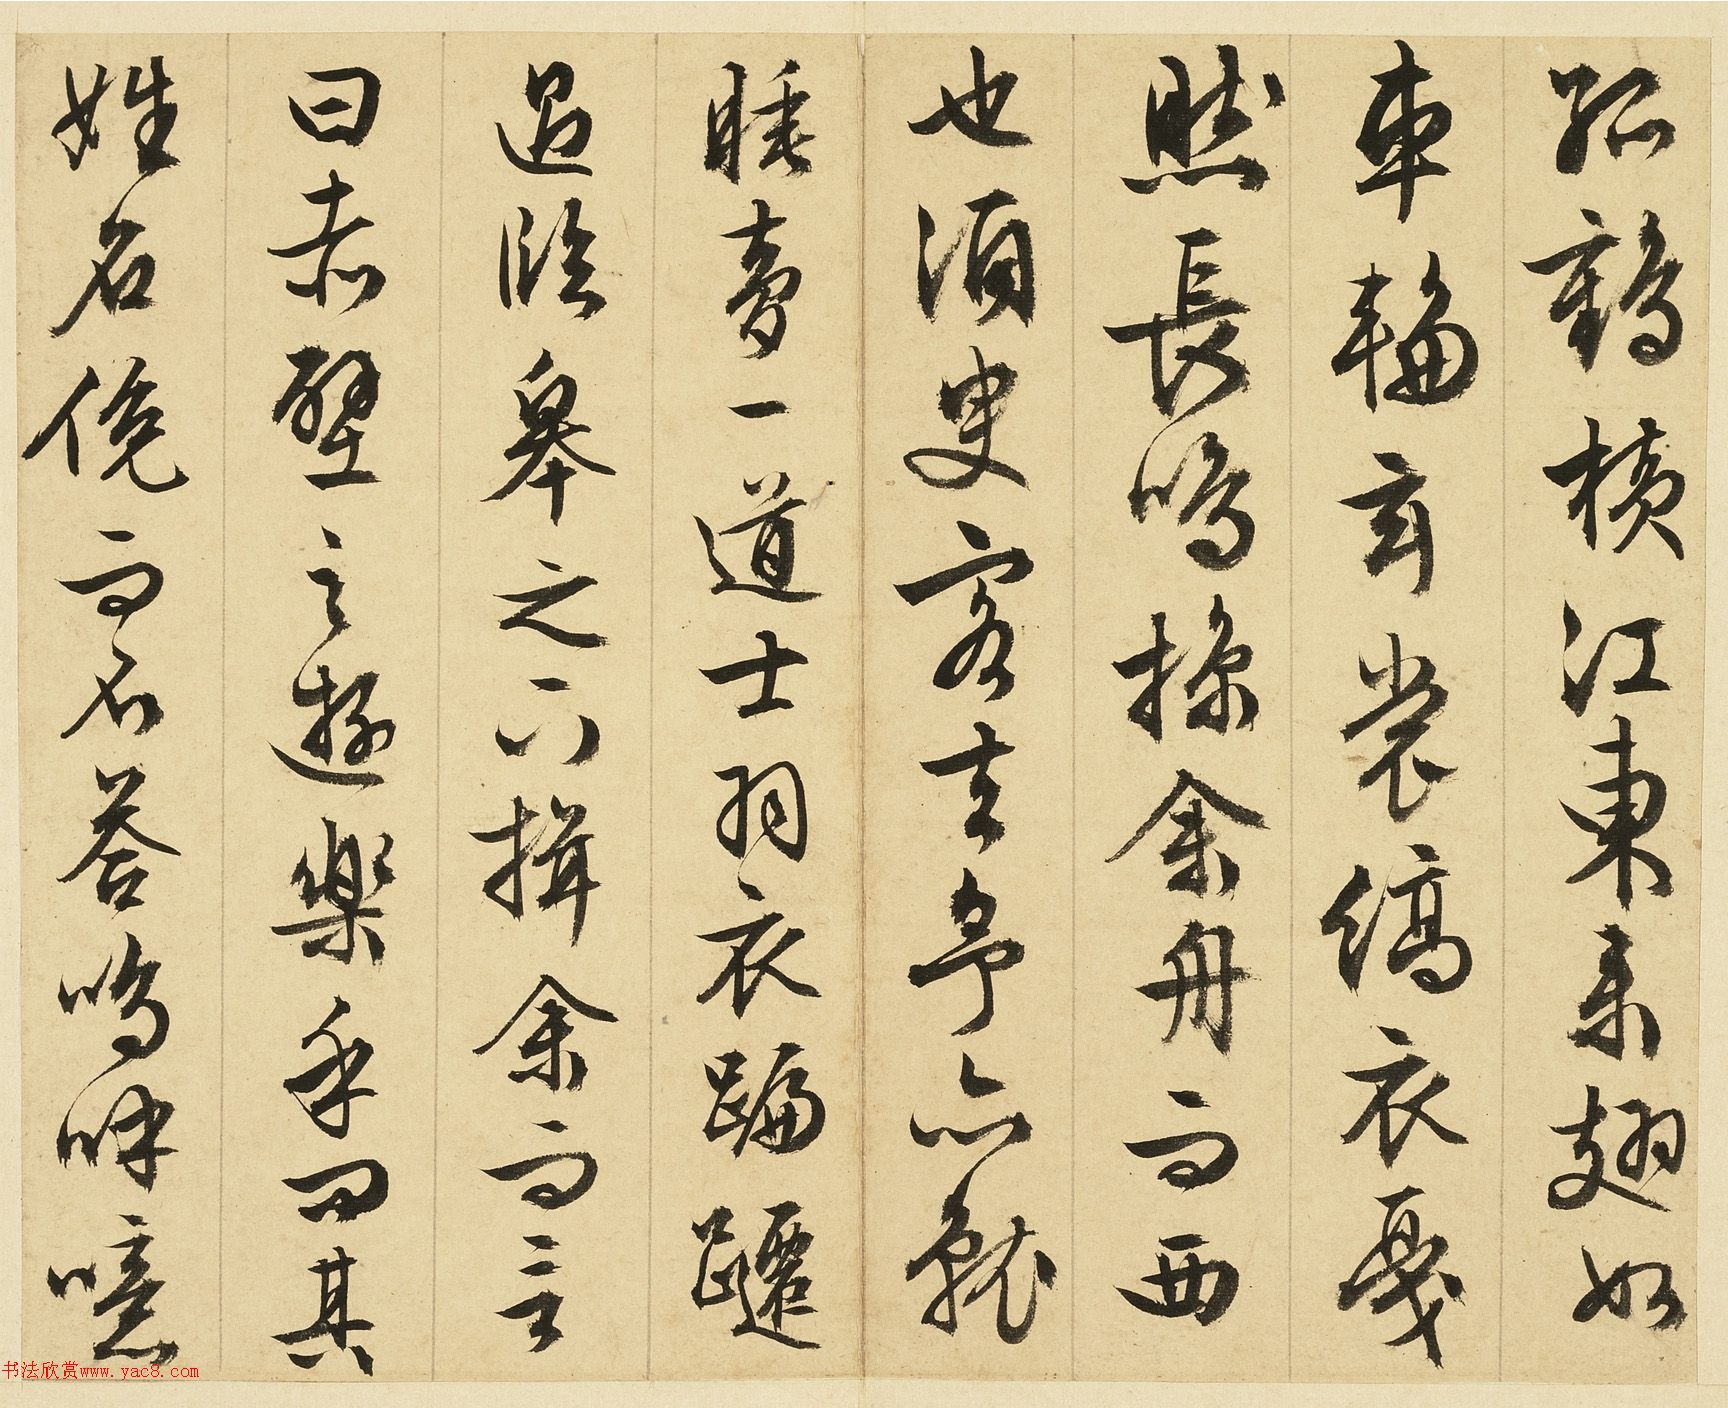 孤鶴横江東来翅如
車輪玄裳縞衣戛
然長鳴掠余舟而西
也須臾客去予亦就
睡夢一道士羽衣蹁躚
過臨皋之下揖余而言
曰赤壁之遊樂乎問其
姓名俛而不答嗚呼噫
书法欣赏www.yac8.com